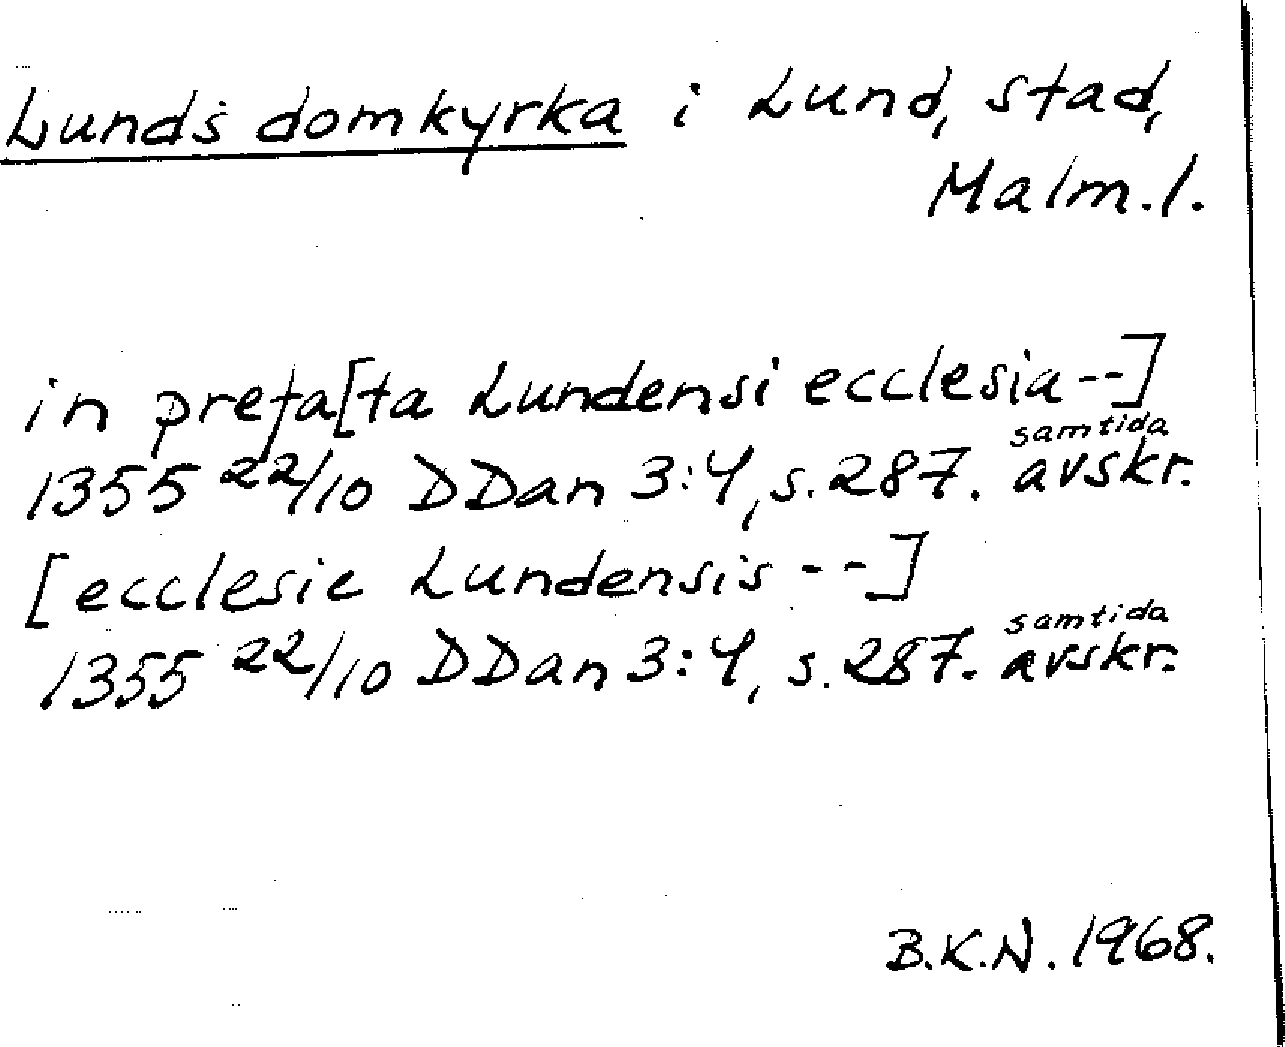 Lunds domkyrka i Lund, stad,
Malm.l.
in prefa[ta Lundensi ecclesia--]
1355 22/10 DDan 3:4, s.287. samtida avskr.
[ecclesie Lundensis --]
1355 22/10 DDan 3:4, s.287. samtida avskr.
B.K.N. 1968.